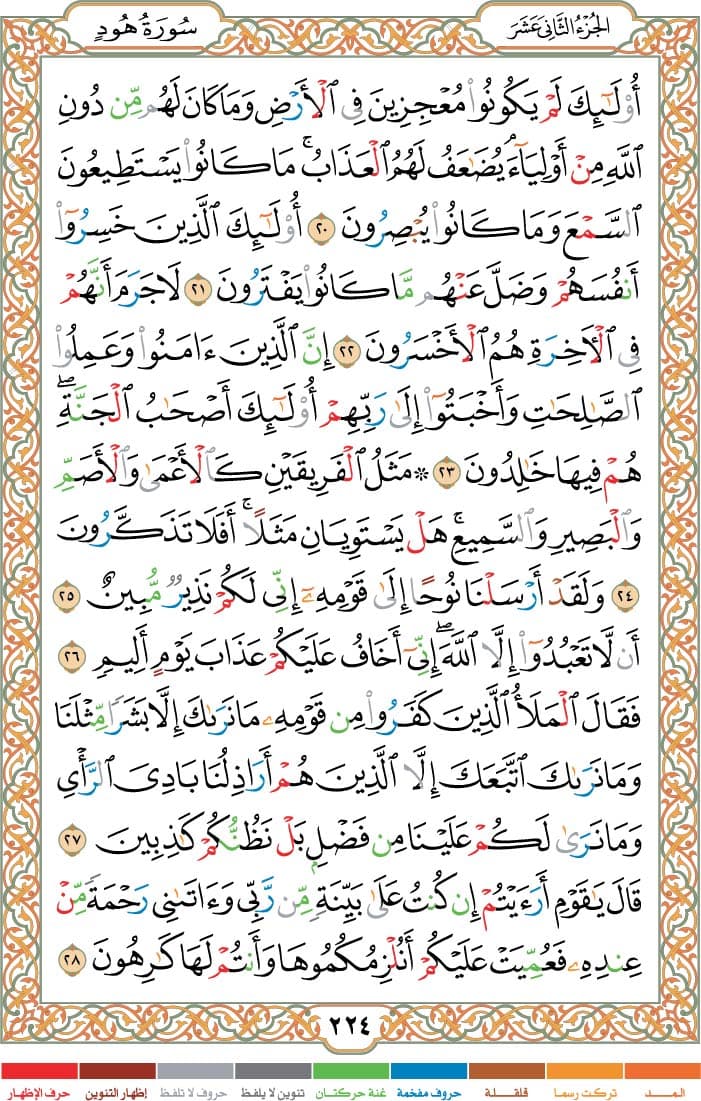 الجُزْءُ الثَّانِى عَشَرَ
سُورَةُ هُودٍ
أُوْلَـٰٓئِكَ لَمْ يَكُونُوا۟ مُعْجِزِينَ فِى ٱلْأَرْضِ وَمَا كَانَ لَهُم مِّن دُونِ
ٱللَّهِ مِنْ أَوْلِيَآءَ ۘ يُضَـٰعَفُ لَهُمُ ٱلْعَذَابُ ۚ مَا كَانُوا۟ يَسْتَطِيعُونَ
ٱلسَّمْعَ وَمَا كَانُوا۟ يُبْصِرُونَ ٢٠ أُوْلَـٰٓئِكَ ٱلَّذِينَ خَسِرُوٓا۟
أَنفُسَهُمْ وَضَلَّ عَنْهُم مَّا كَانُوا۟ يَفْتَرُونَ ٢١ لَا جَرَمَ أَنَّهُمْ
فِى ٱلْـَٔاخِرَةِ هُمُ ٱلْأَخْسَرُونَ ٢٢ إِنَّ ٱلَّذِينَ ءَامَنُوا۟ وَعَمِلُوا۟
ٱلصَّـٰلِحَـٰتِ وَأَخْبَتُوٓا۟ إِلَىٰ رَبِّهِمْ أُوْلَـٰٓئِكَ أَصْحَـٰبُ ٱلْجَنَّةِ ۖ
هُمْ فِيهَا خَـٰلِدُونَ ٢٣ ۞ مَثَلُ ٱلْفَرِيقَيْنِ كَٱلْأَعْمَىٰ وَٱلْأَصَمِّ
وَٱلْبَصِيرِ وَٱلسَّمِيعِ ۚ هَلْ يَسْتَوِيَانِ مَثَلًا ۚ أَفَلَا تَذَكَّرُونَ
٢٤ وَلَقَدْ أَرْسَلْنَا نُوحًا إِلَىٰ قَوْمِهِۦٓ إِنِّى لَكُمْ نَذِيرٌ مُّبِينٌ ٢٥
أَن لَّا تَعْبُدُوٓا۟ إِلَّا ٱللَّهَ ۖ إِنِّىٓ أَخَافُ عَلَيْكُمْ عَذَابَ يَوْمٍ أَلِيمٍ ٢٦
فَقَالَ ٱلْمَلَأُ ٱلَّذِينَ كَفَرُوا۟ مِن قَوْمِهِۦ مَا نَرَىٰكَ إِلَّا بَشَرًا مِّثْلَنَا
وَمَا نَرَىٰكَ ٱتَّبَعَكَ إِلَّا ٱلَّذِينَ هُمْ أَرَاذِلُنَا بَادِىَ ٱلرَّأْىِ
وَمَا نَرَىٰ لَكُمْ عَلَيْنَا مِن فَضْلٍۭ بَلْ نَظُنُّكُمْ كَـٰذِبِينَ ٢٧
قَالَ يَـٰقَوْمِ أَرَءَيْتُمْ إِن كُنتُ عَلَىٰ بَيِّنَةٍ مِّن رَّبِّى وَءَاتَىٰنِى رَحْمَةً مِّنْ
عِندِهِۦ فَعُمِّيَتْ عَلَيْكُمْ أَنُلْزِمُكُمُوهَا وَأَنتُمْ لَهَا كَـٰرِهُونَ ٢٨
٢٢٤
المـــد تركت رسما قلقـلة حروف مفخمة غنة حركتان تنوين لا يلفظ حروف لا تلفظ إظهار التنوين حرف الإظهار